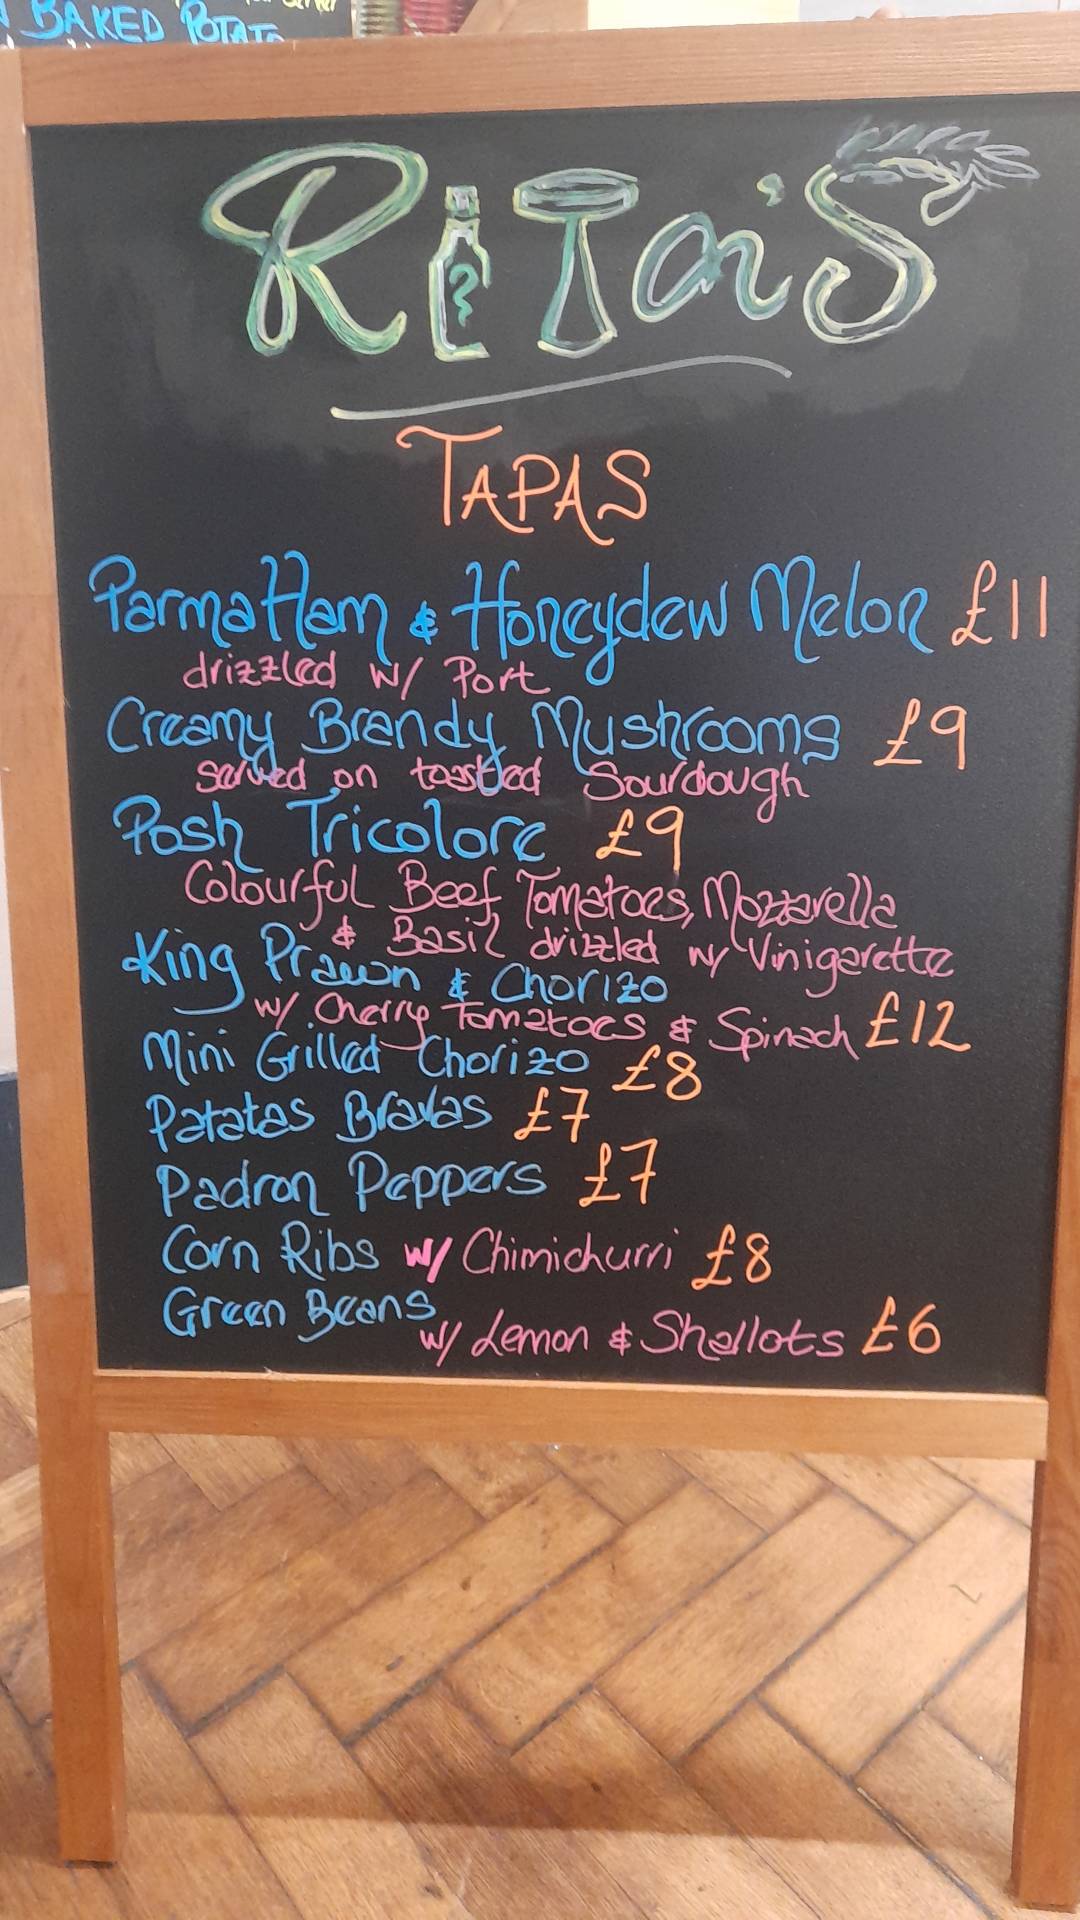 BAKED POTATO
RITa's
TAPAS
Parma Ham & Honeydew Melon £11
drizzled w/ Port
Creamy Brandy Mushrooms £9
served on toasted Sourdough
Posh Tricolore £9
Colourful Beef Tomatoes, Mozzarella
& Basil drizzled w/ Vinigarette
King Prawn & Chorizo
w/ Cherry Tomatoes & Spinach £12
Mini Grilled Chorizo £8
Patatas Bravas £7
Padron Peppers £7
Corn Ribs w/ Chimichurri £8
Green Beans
w/ Lemon & Shallots £6